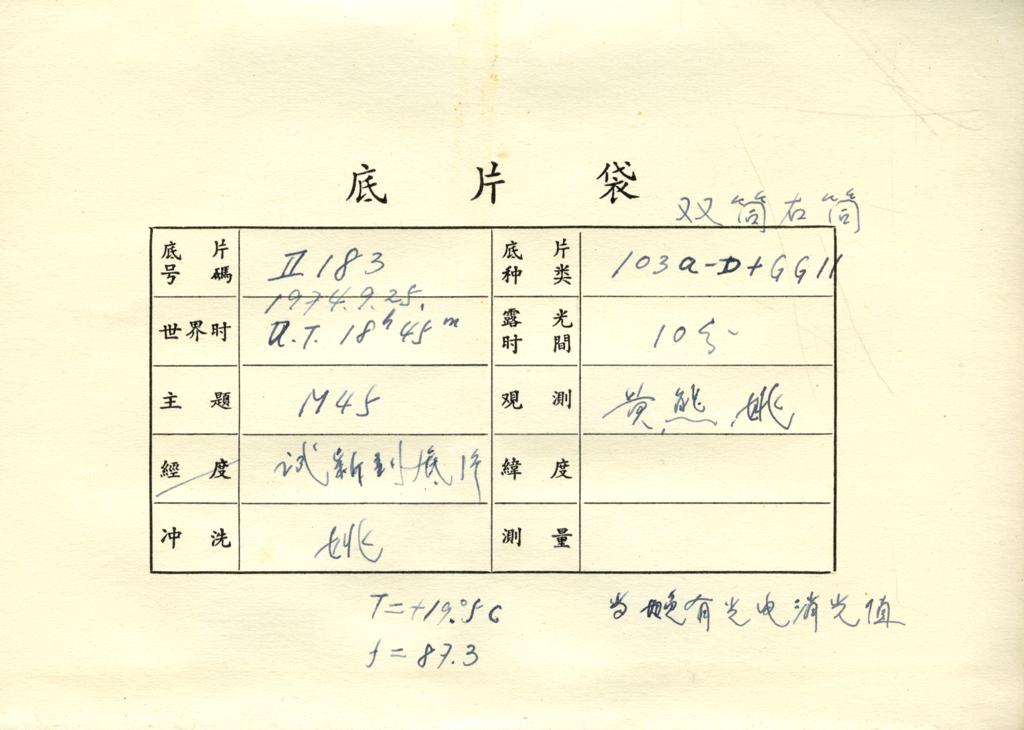 底片袋
双筒右筒
底片号碼 II 183 底片种类 103a-D+GG11
1974.9.25.
世界时 U.T. 18h45m 露光时間 10分
主題 M45 观測 黄,熊,姚
經度 试新到底片 緯度
冲洗 姚 測量
T=+19.°5C 当晚有光电消光值
f=87.3